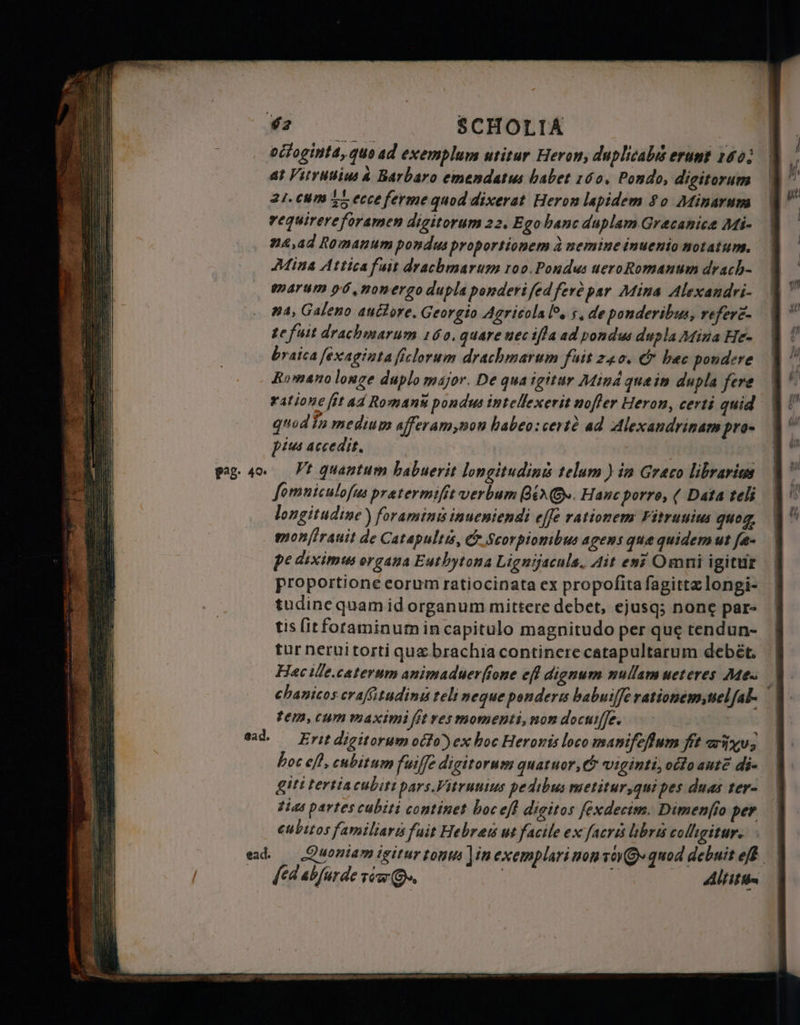 62 SCHOLIA
octoginta, quo ad exemplum utitur Heron, duplicabis erunt 160;
at Vitruuius à Barbaro emendatus habet 160. Pondo, digitorum
21. cum ecce ferme quod dixerat Heron lapidem 80 Minarum
requirere foramen digitorum 22. Ego hanc duplam Græcanicæ Mi-
næ, ad Romanum pondus proportionem à nemine inuenio notatum.
Mina Attica fuit drachmarum 100. Pondus uero Romanum drach-
marum 96, non ergo dupla ponderi sed ferè par Mina Alexandri-
na, Galeno auctore. Georgio Agricola lº. 5, de ponderibus, referē-
te fuit drachmarum 160. quare nec ista ad pondus dupla Mina He-
braica sexaginta siclorum drachmarum fuit 240. & hæc pondere
Romano longe duplo major. De qua igitur Miná quæ in dupla fere
ratione sit ad Romanū pondus intellexerit noster Heron, certi quid
quod in medium afferam, non habeo: certè ad Alexandrinam pro-
pius accedit.
pag. 40. Vt quantum habuerit longitudinis telum ) in Græco librarius
somniculosus prætermisit verbum βέλος. Hanc porro, ( Data teli
longitudine ) foraminis inueniendi esse rationem Vitruuius quoq;
monstrauit de Catapultis, & Scorpionibus agens quæ quidem ut sæ-
pe diximus organa Euthytona Lignijacula. Ait enī Omni igitur
proportione eorum ratiocinata ex proposita sagittæ longi-
tudine quam id organum mittere debet, ejusq; nonę par-
tis fit foraminum in capitulo magnitudo per quę tendun-
tur nerui torti quæ brachia continere catapultarum debēt.
Hæc ille. cæterum animaduersione est dignum nullam ueteres Me-
chanicos crassitudinis teli neque ponderis habuisse rationem, uel sal-
tem, cum maximi sit res momenti, non docuisse.
ead. Erit digitorum octo) ex hoc Heronis loco manifestum fit πῆχυς
hoc est, cubitum fuisse digitorum quatuor, & viginti, octo autē di-
giti tertia cubiti pars. Vitruuius pedibus metitur, qui pes duas ter-
tias partes cubiti continet hoc est digitos sexdecim. Dimensio per
cubitos familiaris fuit Hebreis ut facile ex sacris libris colligitur.
ead. Quoniam igitur tonus ] in exemplari non τόνος quod debuit est
sed absurde τόπος. Altitu-